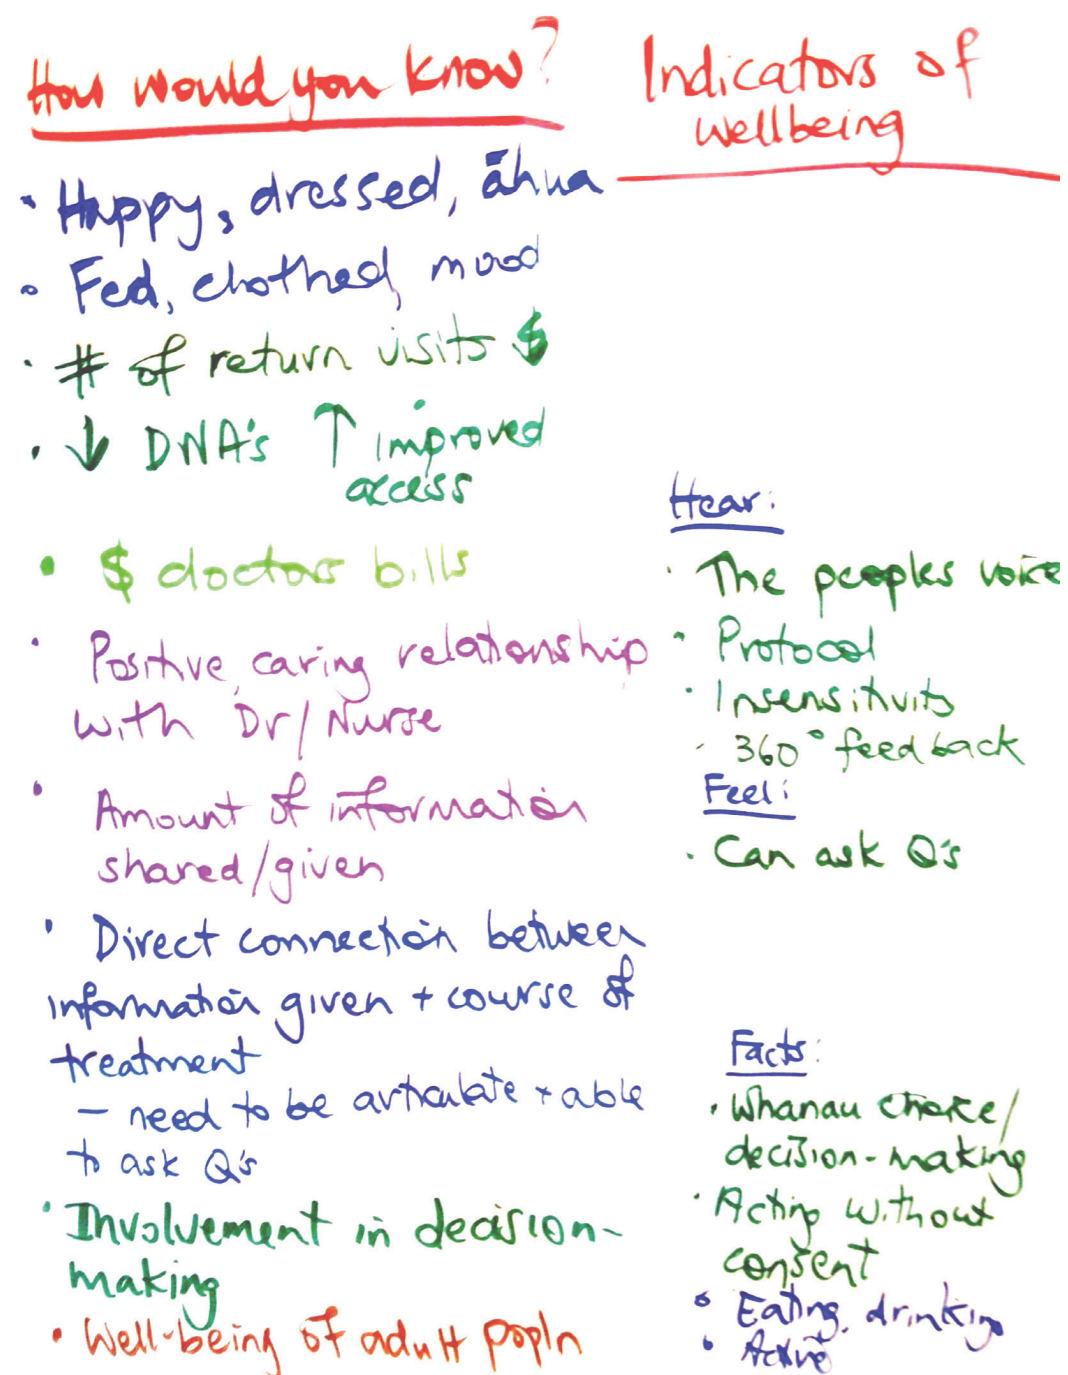 How would you know?
• Happy, dressed, āhua
• Fed, clothed, mood
• # of return visits $
• ↓ DNA's ↑ improved
access
• $ doctors bills
• Positive, caring relationship
with Dr/Nurse
• Amount of information
shared/given
• Direct connection between
information given + course of
treatment
– need to be articulate + able
to ask Q's
• Involvement in decision-
making
• Well-being of adult popln
Indicators of
wellbeing
Hear:
• The peoples voice
• Protocol
• Insensitivity
• 360° feedback
Feel:
• Can ask Q's
Facts:
• Whanau choice/
decision-making
• Acting without
consent
• Eating, drinking
• Active